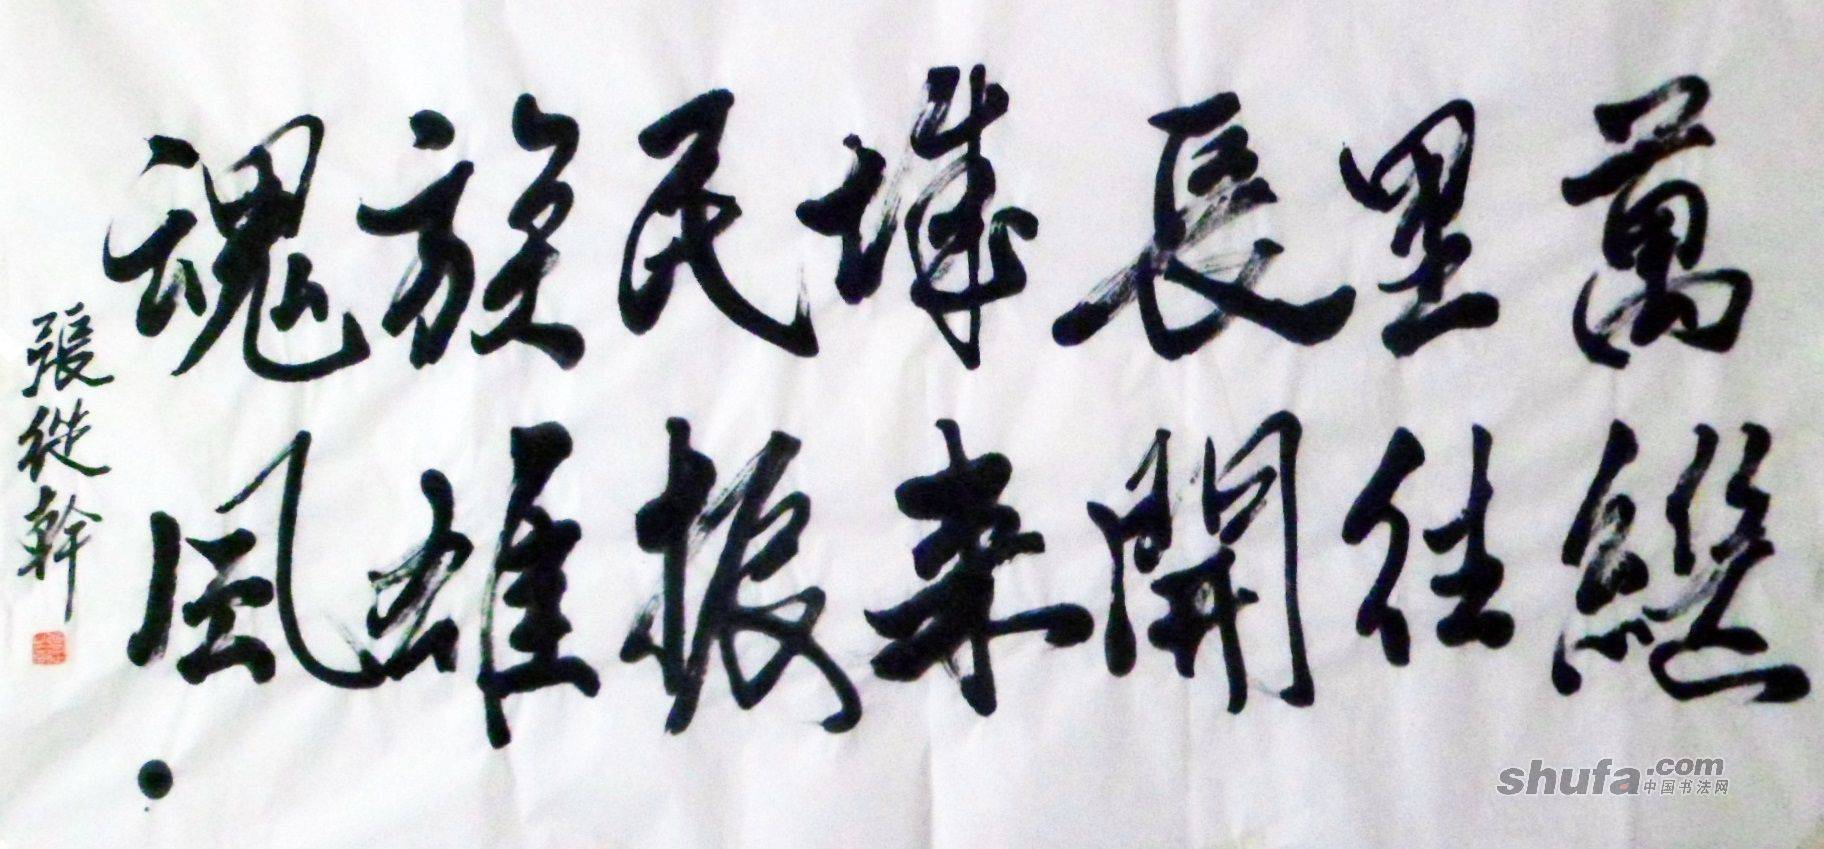 萬里長城民族魂
繼往開來振雄風
張從幹
shufa.com
中国书法网